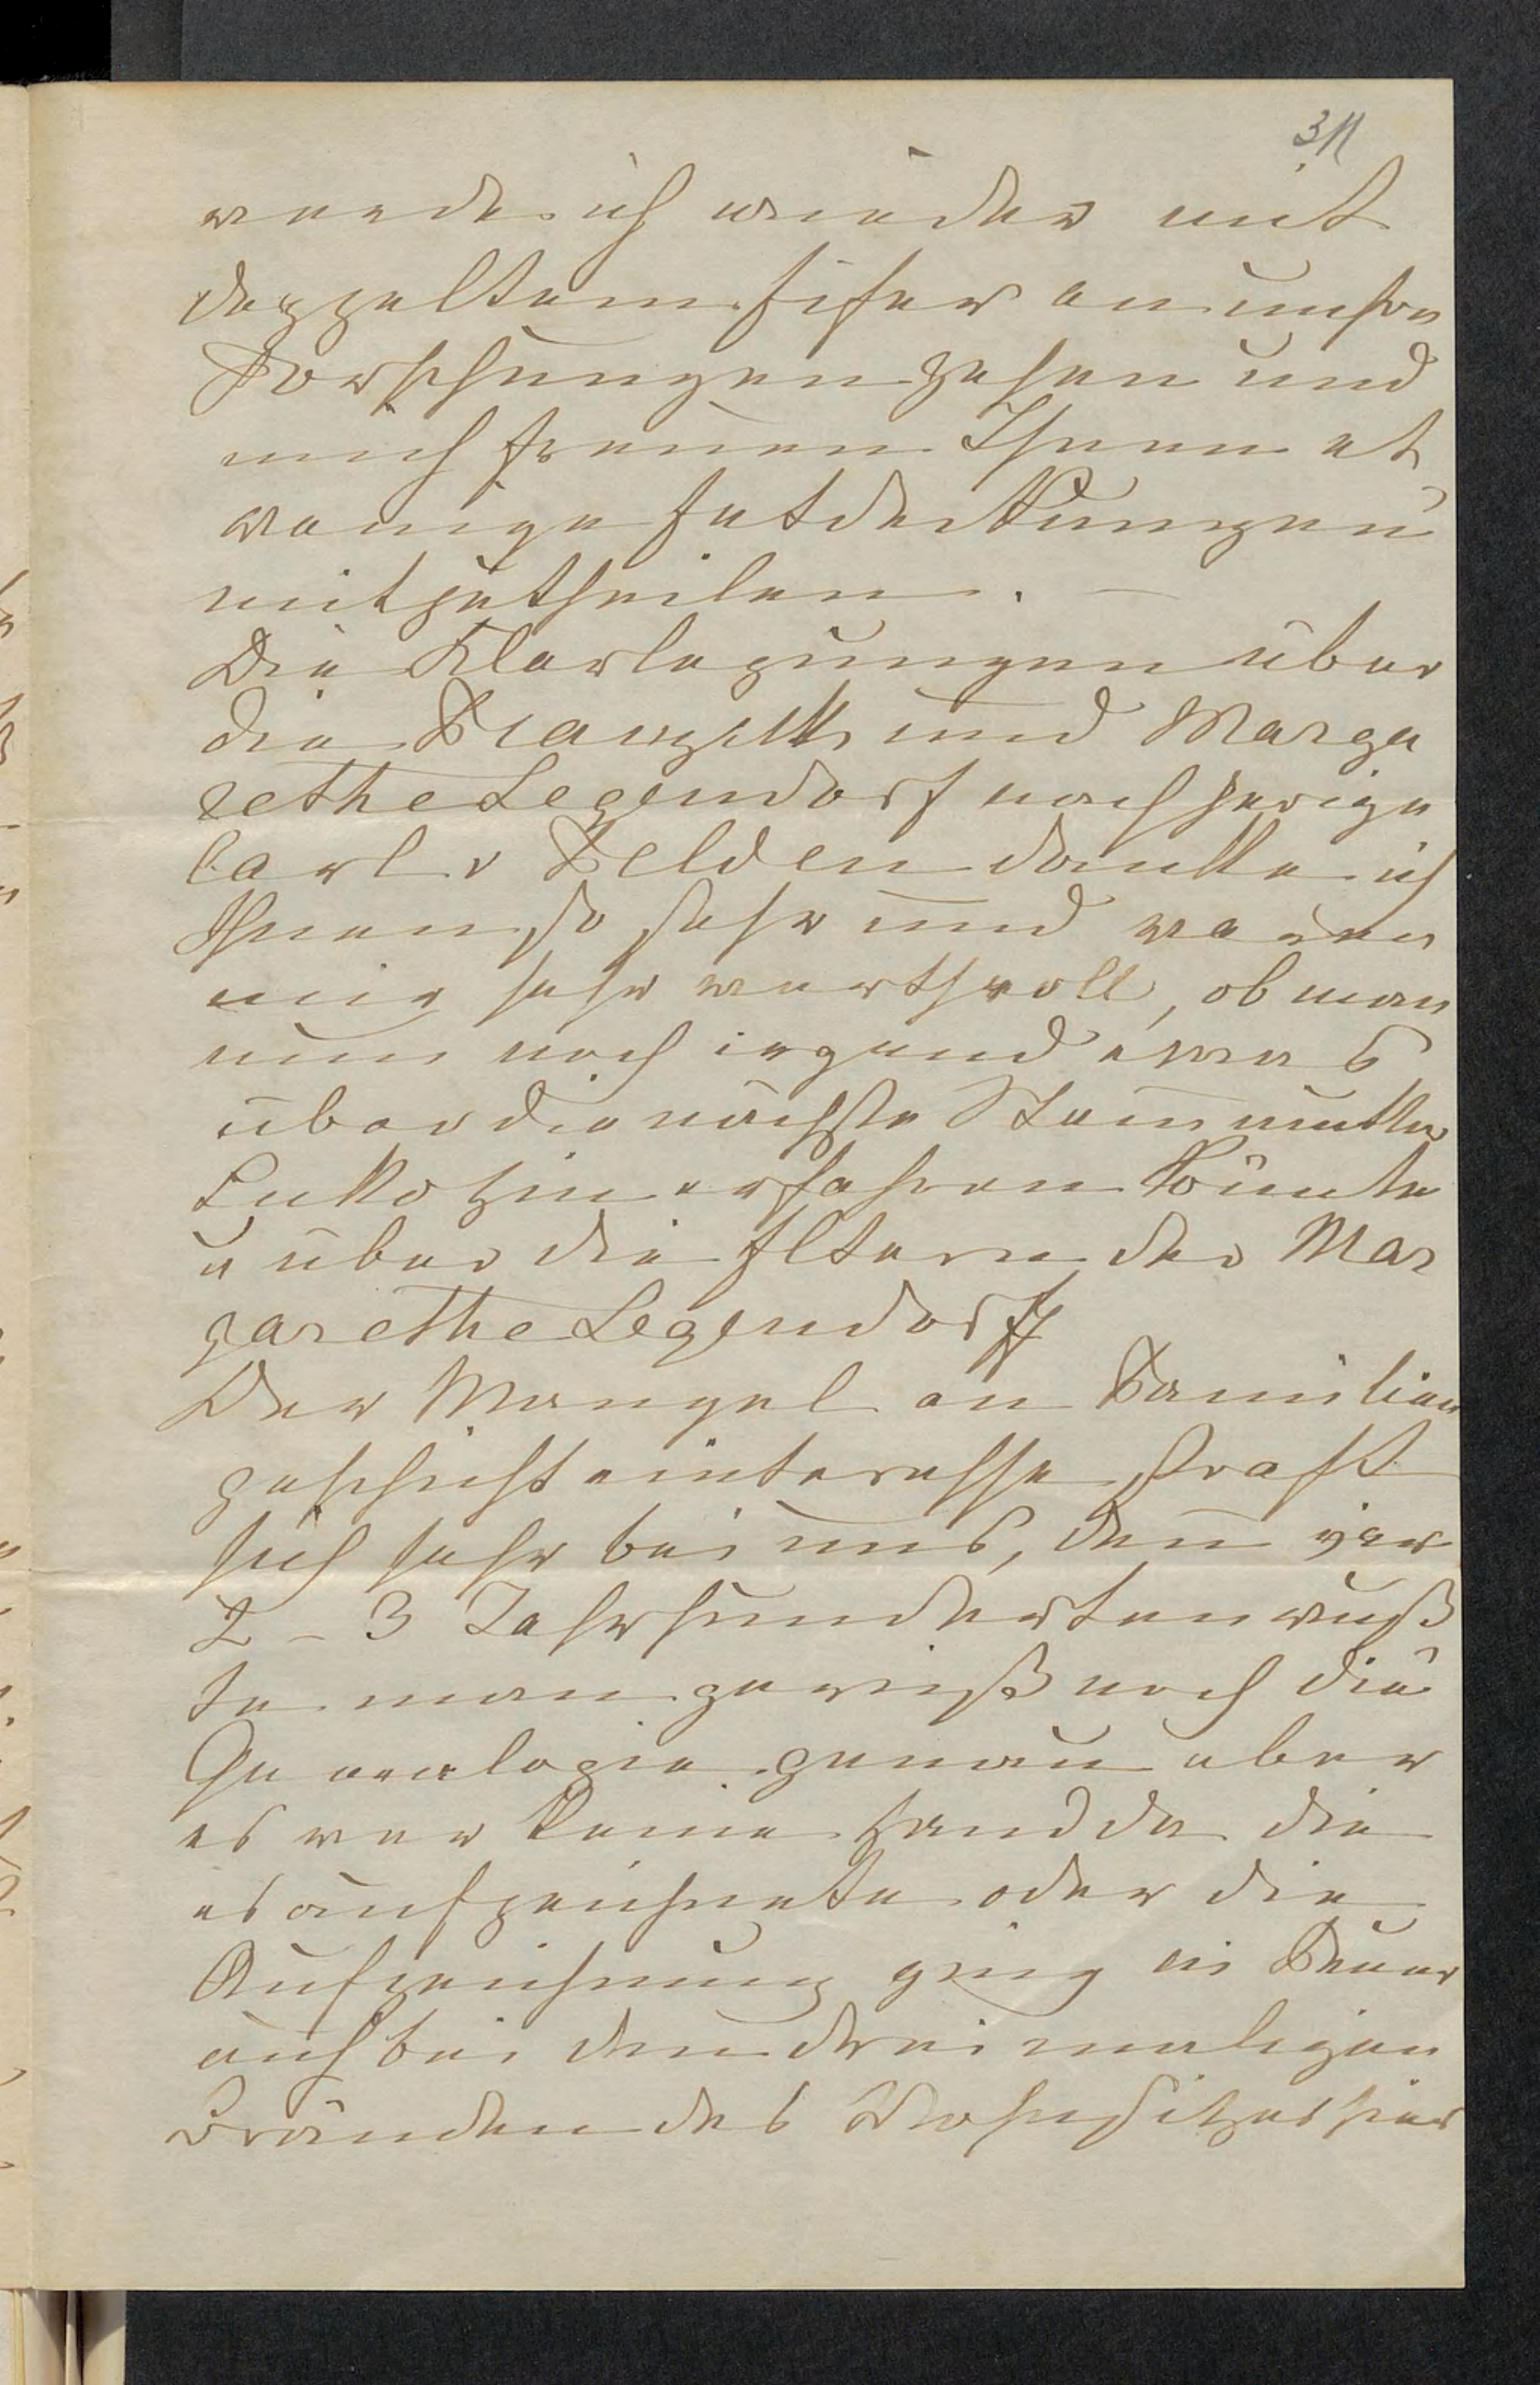 311
werde ich wieder mit
doppeltem Eifer an unsre
Forschungen gehen und
mich freuen Ihnen et
wanige Entdeckungen
mitzutheilen. —
Die Klarlegungen über
die und Marga
rethe Legendorf nachherige
Carl v Zelden danke ich
Ihnen so sehr und waren
mir sehr werthvoll, ob man
nun noch irgend etwas
über die nächste Stammutter
erfahren könnte
u über die Eltern der Mar
garethe Legendorff
Der Mangel an Familien
geschichteinteresse straft
sich sehr bei uns, denn vor
2 – 3 Jahrhunderten wuß
te man gewiß noch die
Genealogie genau aber
es war keine Hand da die
es aufzeichnete oder die
Aufzeichnung ging in Feuer
auf bei den dreimaligen
Bränden des Wohnsitzes hier